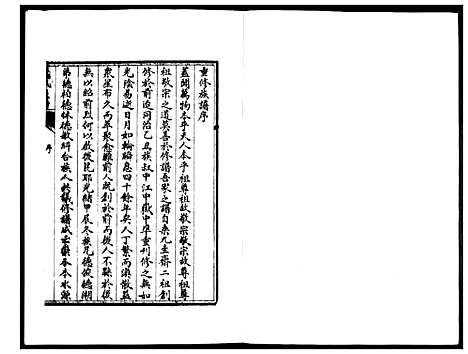 重修族譜序
蓋聞萬物本乎天人本乎祖尊祖故敬宗敬宗故尊
祖敬宗之道莫善於修譜吾家之譜自來九圭齋二祖創
修於前迨同治乙丑族叔中江中嶽中阜重刊修之無如
光陰易逝日月如輪瞬息四十餘年矣人丁繁而渙散益
眾星布久而萃聚愈難前人既創於前而後人不繼於後
無以紹前烈何以啟後昆耶光緒甲辰冬族兄德俊德湖
弟德柏德休德敏糾合族人於議修譜咸木本水源
序